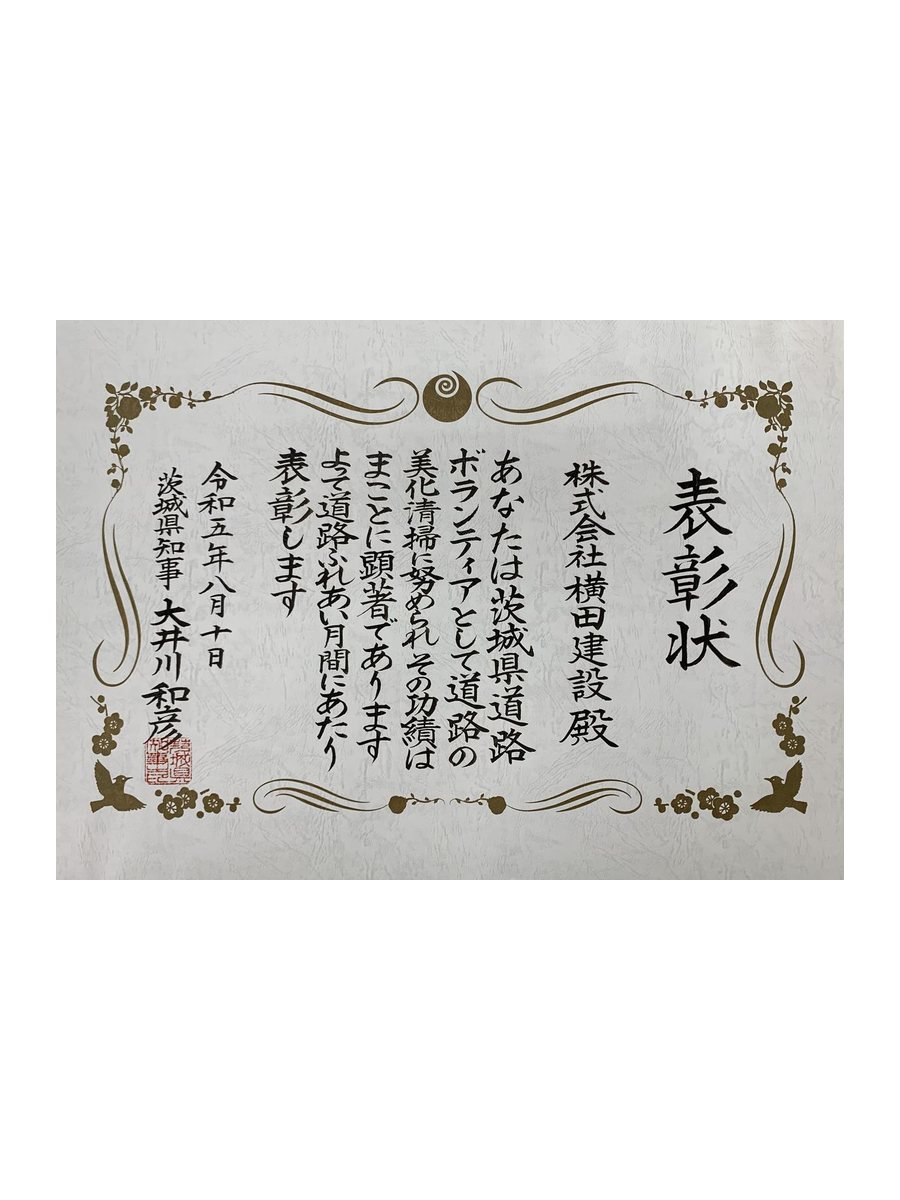 表彰状
株式会社横田建設殿
あなたは茨城県道路
ボランティアとして道路の
美化清掃に努められその功績は
まことに顕著であります
よって道路ふれあい月間にあたり
表彰します
令和五年八月十日
茨城県知事 大井川和彦
茨城県
知事之印